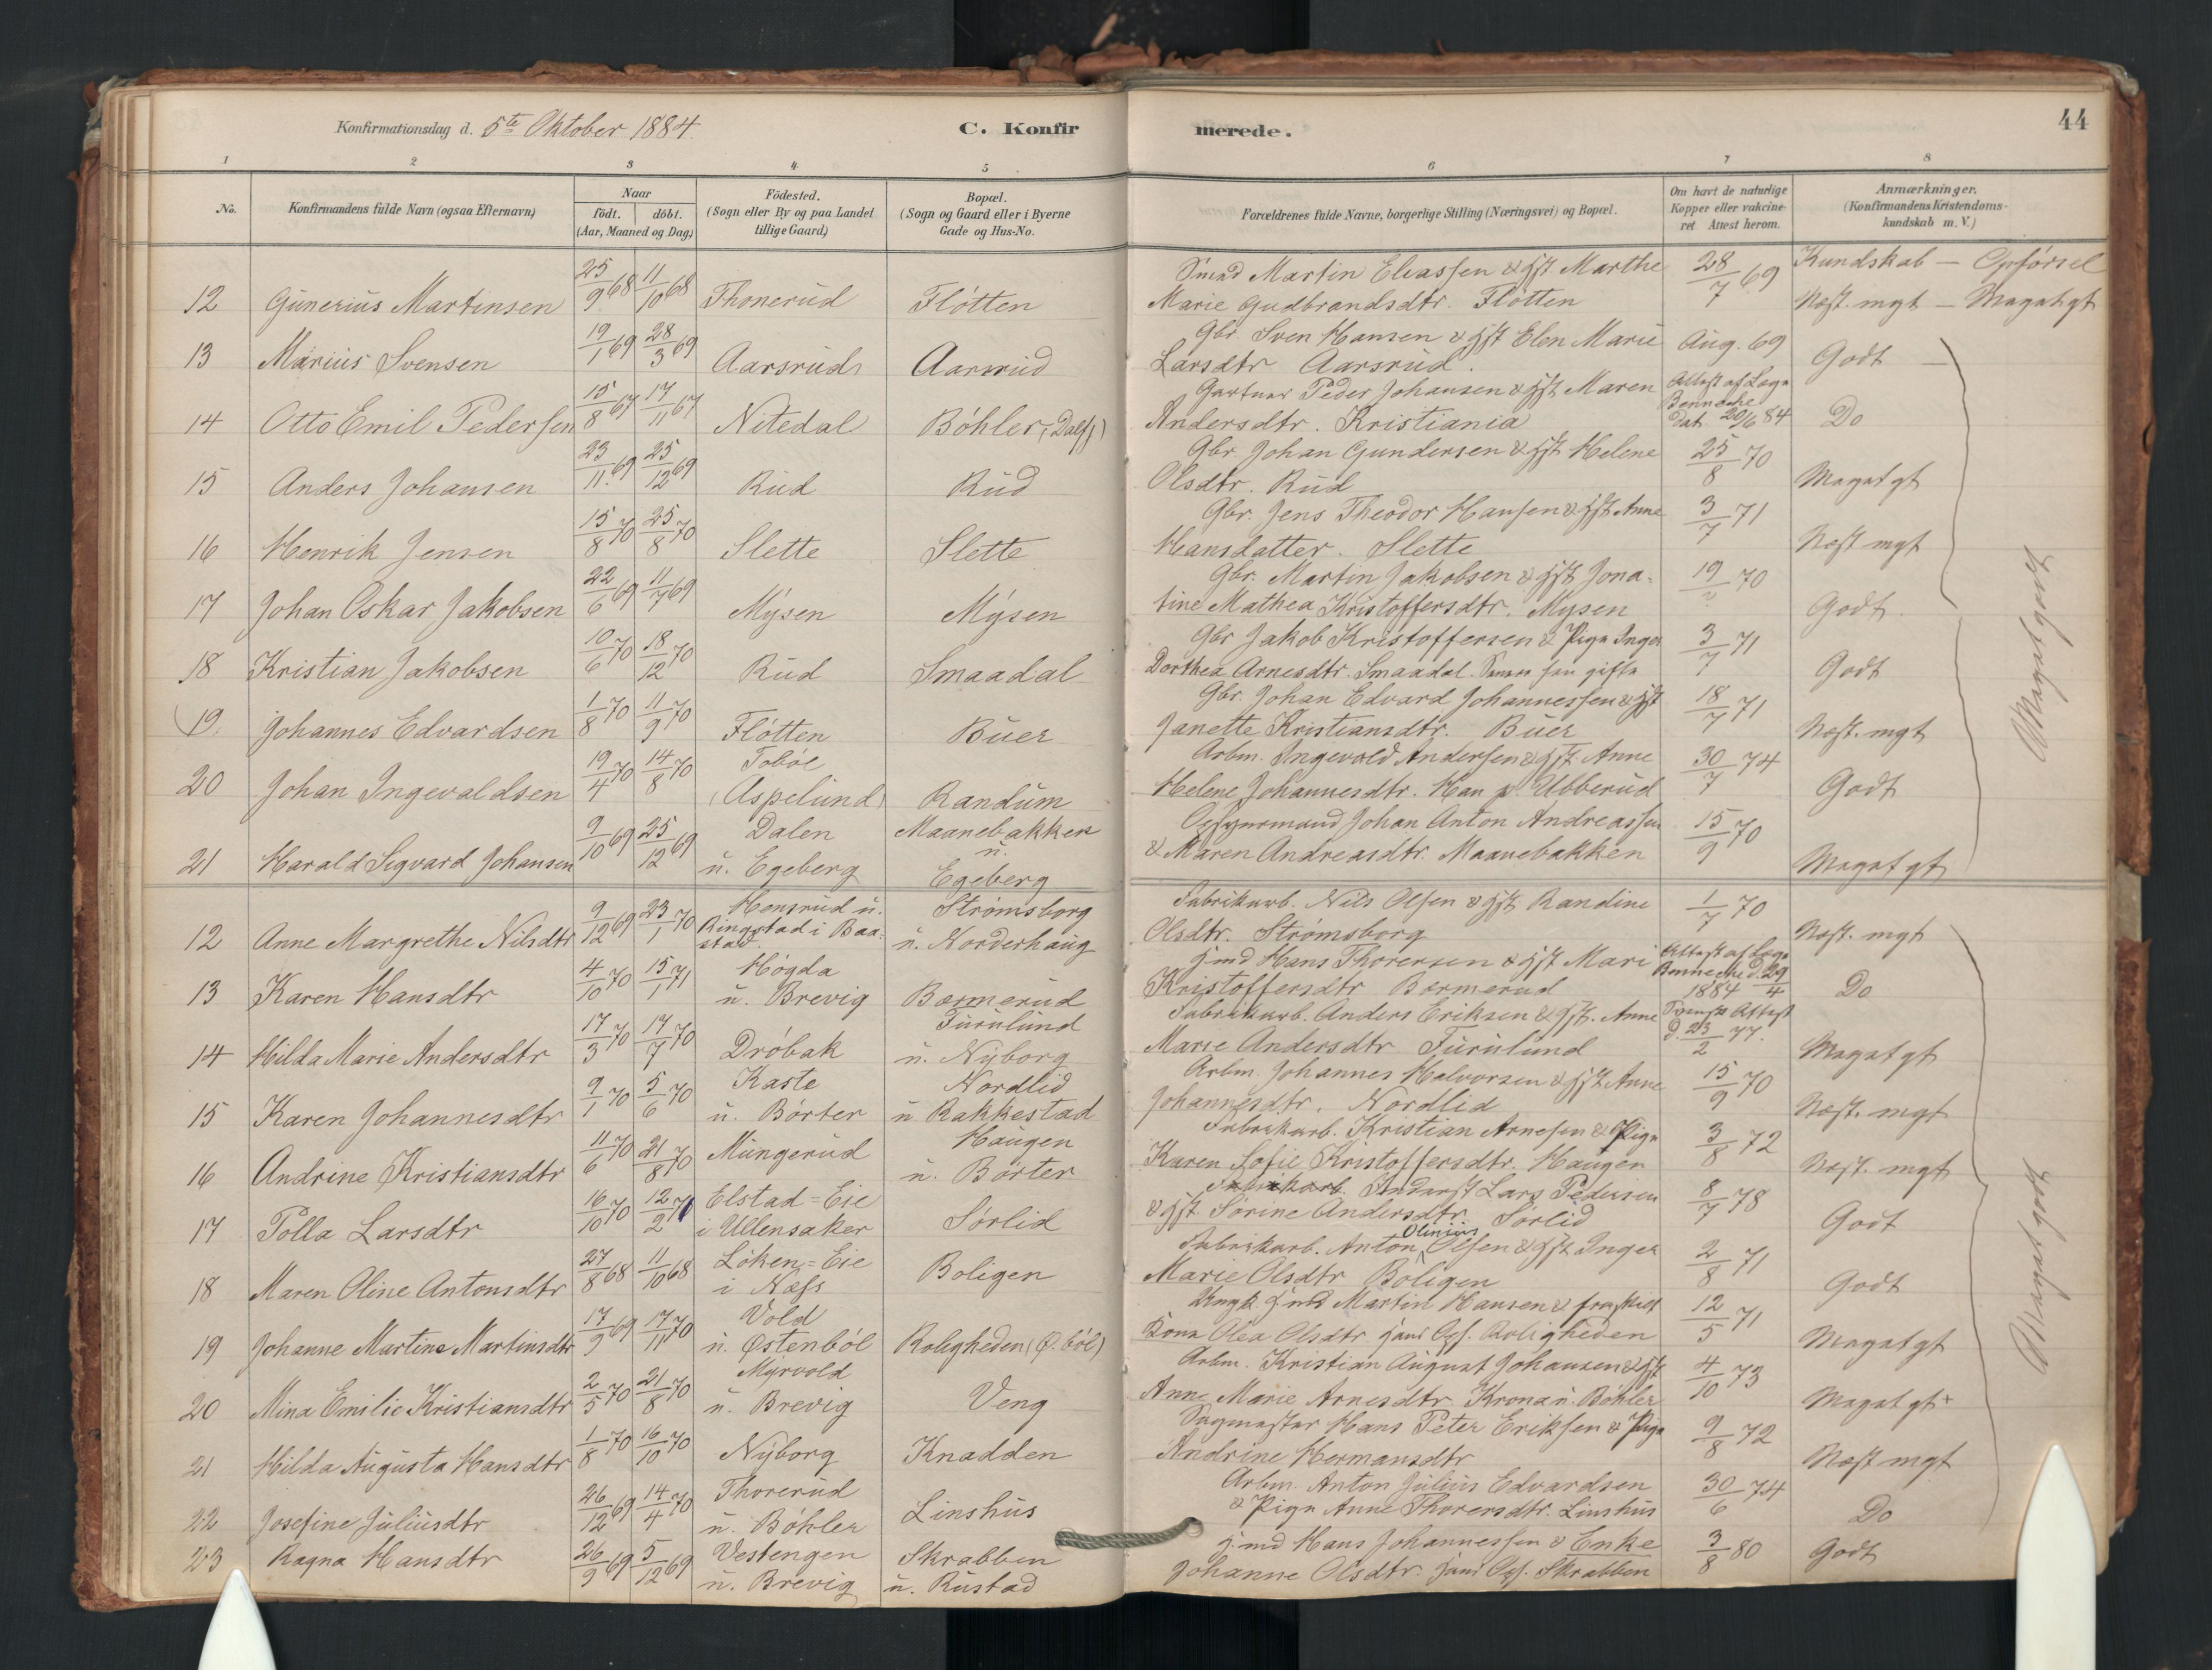 Konfirmationsdag d. 5te Oktober 1884. C. Konfirmerede. 44
1 2 3 4 5 6 7 8
No.
Konfirmandens fulde Navn (ogsaa Efternavn)
Naar
födt. döbt.
(Aar, Maaned og Dag)
Födested.
(Sogn eller By og paa Landet
tillige Gaard)
Bopæl.
(Sogn og Gaard eller i Byerne
Gade og Hus-No.
Forældrenes fulde Navne, borgerlige Stilling (Næringsvei) og Bopæl.
Om havt de naturlige
Kopper eller vakcine-
ret Attest herom.
Anmærkninger.
(Konfirmandens Kristendoms-
kundskab m. V.)
Kundskab – Opførsel
12 Gunerius Martinsen 25/9 68 11/10 68 Thonerud Fløtten
Smed Martin Eliassen & Hst Marthe
Marie Gudbrandsdtr. Fløtten
28/7 69 Næst. mgt – Megat gt
13 Marius Svensen 19/1 69 28/3 69 Aarsrud Aarsrud
Gbr. Sven Hansen & Hst Elen Marie
Larsdtr Aarsrud.
Aug. 69 Godt
14 Otto Emil Pedersen 15/8 67 17/11 67 Nitedal Bøhler
Gartner Peder Johansen & Hst Maren
Andersdtr. Kristiania
Attest af Læge
Dat. 20/6 84 Do
15 Anders Johansen 23/11 69 25/12 69 Rud Rud
Gbr. Johan Gundersen & Hst Helene
Olsdtr. Rud
25/8 70 Megat gt
16 Henrik Jensen 15/8 70 25/8 70 Slette Slette
Gbr. Jens Theodor Hansen & Hst Anne
Hansdatter. Slette
3/7 71 Næst mgt
17 Johan Oskar Jakobsen 22/6 69 11/7 69 Mysen Mysen
Gbr. Martin Jakobsen & Hst Jona-
tine Mathea Kristoffersdtr. Mysen
19/? 70 Godt.
18 Kristian Jakobsen 10/6 70 18/12 70 Rud Smaadal
Gbr Jakob Kristoffersen & Pige Inger
Dorthea Arnesdtr. Smaadal.
3/7 71 Godt
19. Johannes Edvardsen 1/8 70 11/9 70 Fløtten Buer
Gbr. Johan Edvard Johannessen & Hst
Janette Kristiansdtr. Buer
18/7 71 Næst. mgt
20 Johan Ingevaldsen 19/4 70 14/8 70 Tobøl
(Aspelund) Randum
Arbm. Ingevald Andersen & Hst Anne
Helene Johannesdtr. Han p. Ubberud
30/7 74 Godt
21 Harald Sigvard Johansen 9/10 69 25/12 69 Dalen
u. Egeberg
Maanebakken
u.
Egeberg
Opsynsmand Johan Anton Andreassen
& Maren Andreasdtr. Maanebakken
15/9 70 Megat gt
Meget godt
12 Anne Margrethe Nilsdtr 9/12 69 23/1 70 Hensrud u.
Ringstad i Baa-
stad.
Strømsborg
u. Norderhaug
Fabrikarb. Nils Olsen & Hst Randine
Olsdtr. Strømsborg
1/7 70 Næst. mgt
13 Karen Hansdtr 4/10 70 15/1 71 Høgda
u. Brevig Bærmerud
Hans Thorersen & Hst Mari
Kristoffersdtr Bærmerud
Attest af Læge
29/4
1884 Do
14 Hilda Marie Andersdtr 17/3 70 17/7 70 Drøbak
Furulund
u. Nyborg
Fabrikarb. Anders Eriksen & Hst. Anne
Marie Andersdtr Furulund
Attest
d. 23/2 77. Megat gt
15 Karen Johannesdtr 9/1 70 5/6 70 Kaste
u. Børter
Nordlid
u Rakkestad
Arbm. Johannes Halvorsen & Hst Anne
Johannesdtr. Nordlid
15/9 70 Næst. mgt
16 Andrine Kristiansdtr 11/6 70 21/8 70 Mungerud
Haugen
u. Børter
Fabrikarb. Kristian Arnesen & Pige
Karen Sofie Kristoffersdtr. Haugen
3/8 72 Næst. mgt
17 Polla Larsdtr 16/10 70 12/2 71 Elstad=Eie
i Ullensaker Sørlid
Lars Pedersen
& Hst. Sørine Andersdtr Sørlid
8/7 78 Godt
18 Maren Oline Antonsdtr 27/8 68 11/10 68 Løken=Eie
i Næss Boligen
Fabrikarb. Anton Olinius Olsen & Hst Inger
Marie Olsdtr Boligen
2/8 71 Godt
19 Johanne Martine Martinsdtr 17/9 69 17/11 70 Vold
u. Østenbøl Roligheden (Ø. bøl)
Martin Hansen & fraskilt
Kone Olea Olsdtr. Roligheden
12/5 71 Megat gt
20 Mina Emilie Kristiansdtr 2/5 70 21/8 70 Myrvold
u. Brevig Veng
Arbm. Kristian August Johansen & Hst
Anne Marie Arnesdtr Krona u. Bøhler
4/10 73 Megat gt+
21 Hilda Augusta Hansdtr 1/8 70 16/10 70 Nyborg Knadden
Sagmester Hans Peter Eriksen & Pige
Andrine Hermansdtr
9/8 72 Næst mgt
22 Josefine Juliusdtr 26/12 69 14/4 70 Thorerud
u. Bøhler Linshus
Arbm. Anton Julius Edvardsen
& Pige Anne Thorersdtr. Linshus
30/6 74 Do
23 Ragna Hansdtr 26/9 69 5/12 69 Vestengen
u. Brevig
Skrabben
u. Rustad
Hans Johannessen & Enke
Johanne Olsdtr. Skrabben
3/8 80 Godt
Meget godt